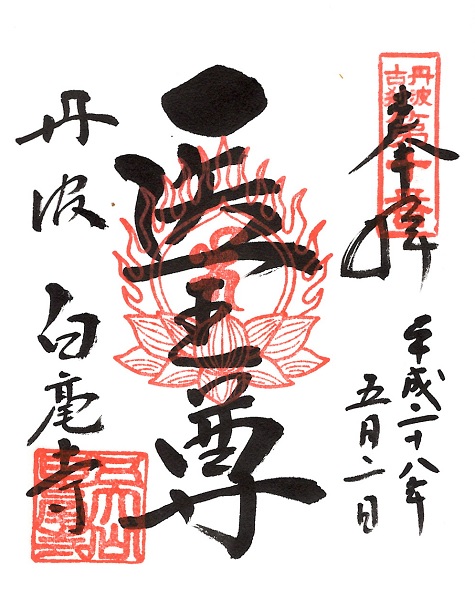 丹波
古刹
奉拝
平成二十八年
五月二日
王尊
丹波 白毫寺
五大山
白毫寺